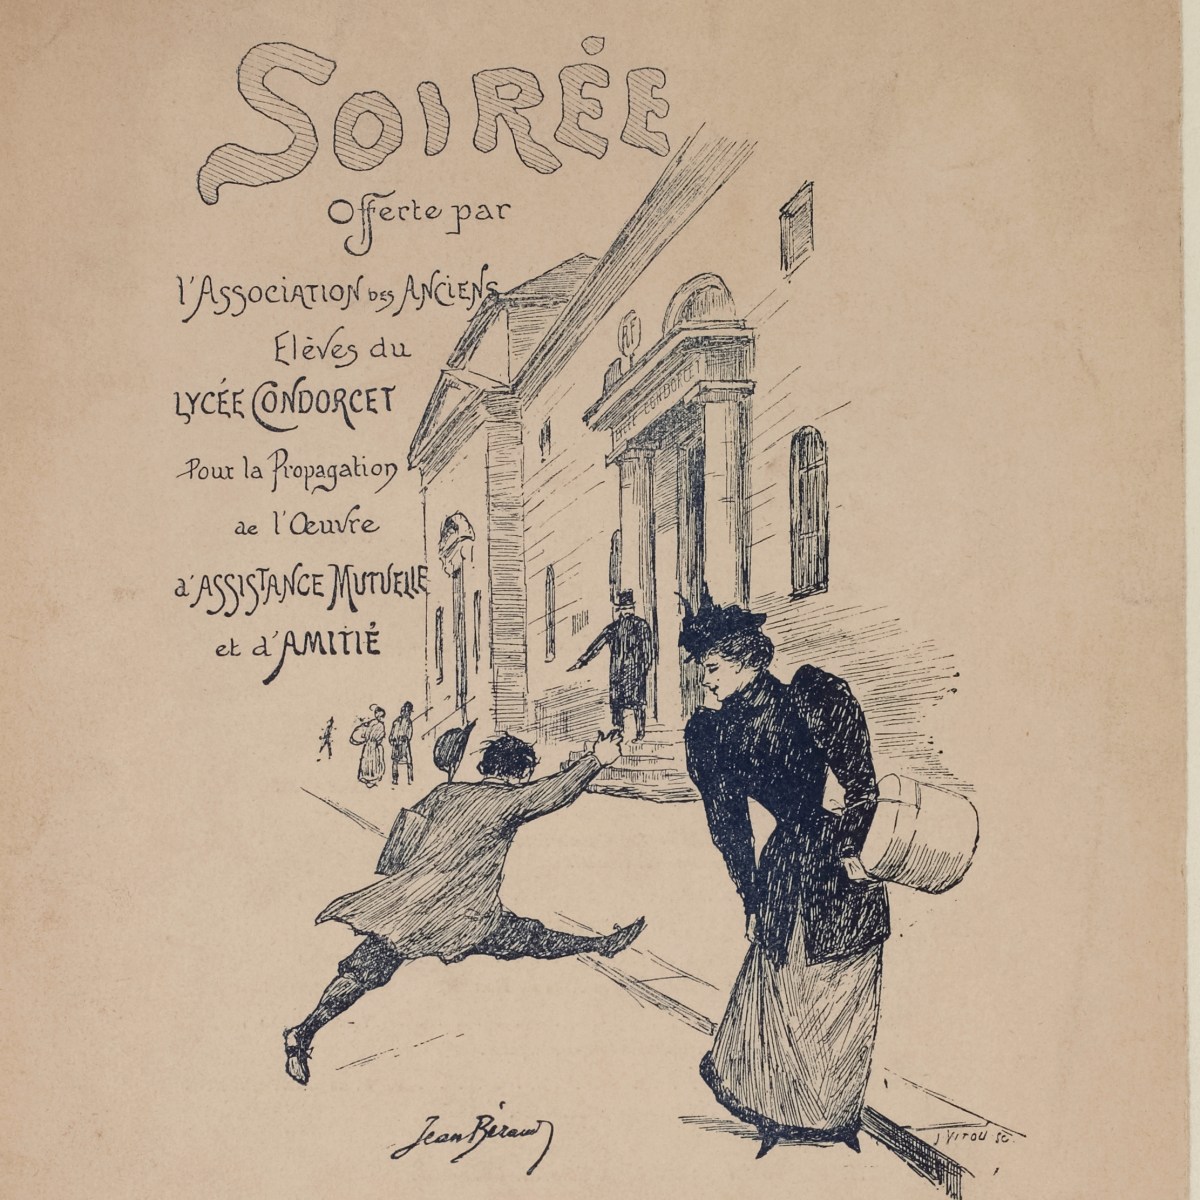 SOIRÉE
Offerte par
l'ASSOCIATION DES ANCIENS
Elèves du
LYCÉE CONDORCET
Pour la Propagation
de l'Œuvre
d'ASSISTANCE MUTUELLE
et d'AMITIÉ
RF
Jean Béraud
J VITOU SC.